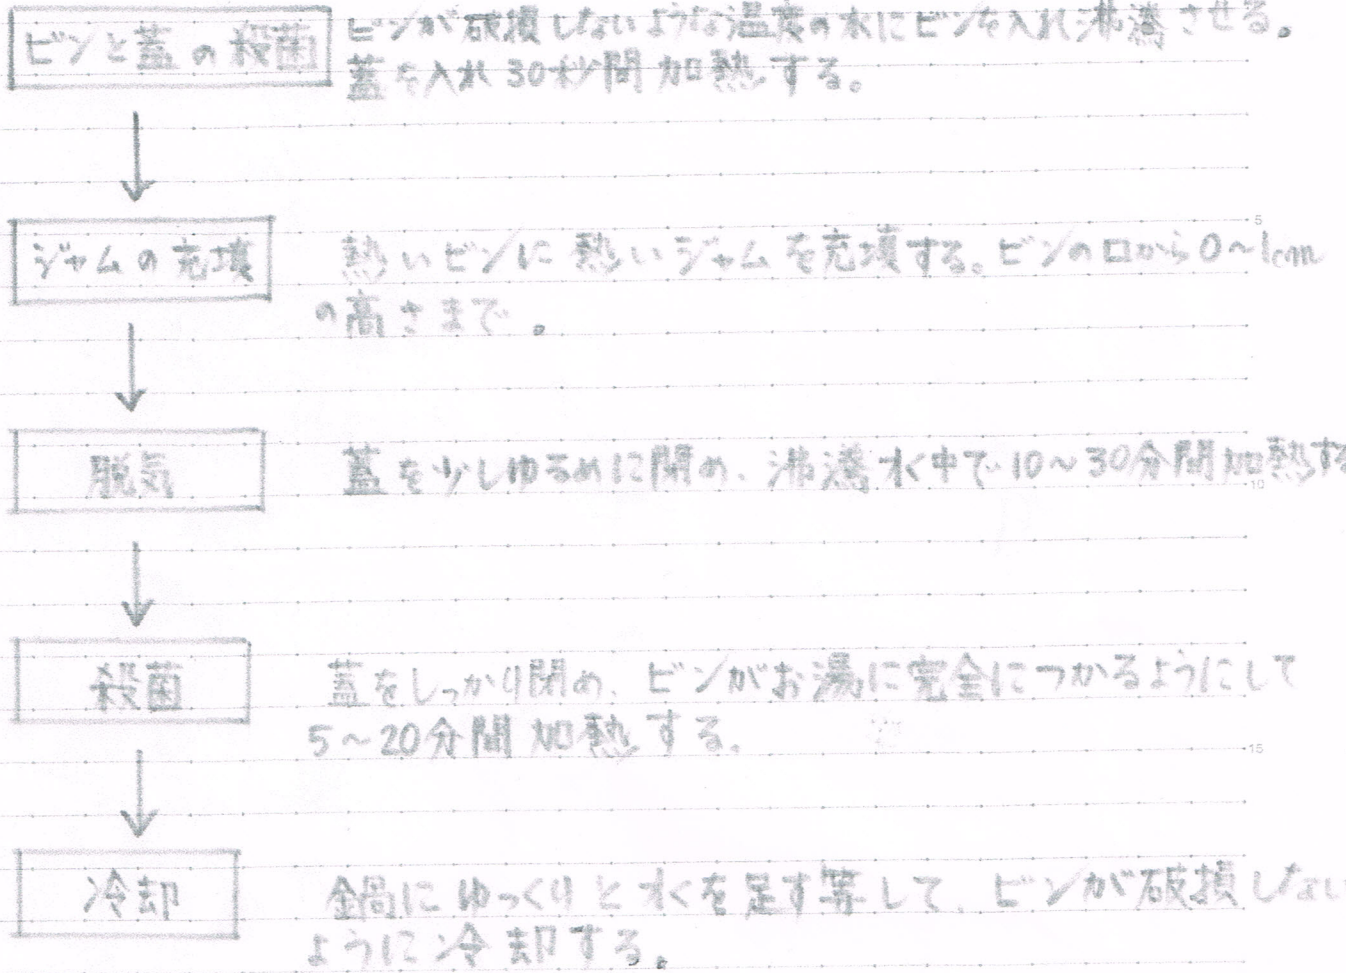 ビンと蓋の殺菌
ビンが破損しないような温度の水にビンを入れ沸騰させる。
蓋を入れ30秒間加熱する。
ジャムの充填
熱いビンに熱いジャムを充填する。ビンの口から0~1cm
の高さまで。
5
脱気
蓋を少しゆるめに閉め、沸騰水中で10~30分間加熱する
10
殺菌
蓋をしっかり閉め、ビンがお湯に完全につかるようにして
5~20分間加熱する。
15
冷却
鍋にゆっくりと水を足す等して、ビンが破損しない
ように冷却する。